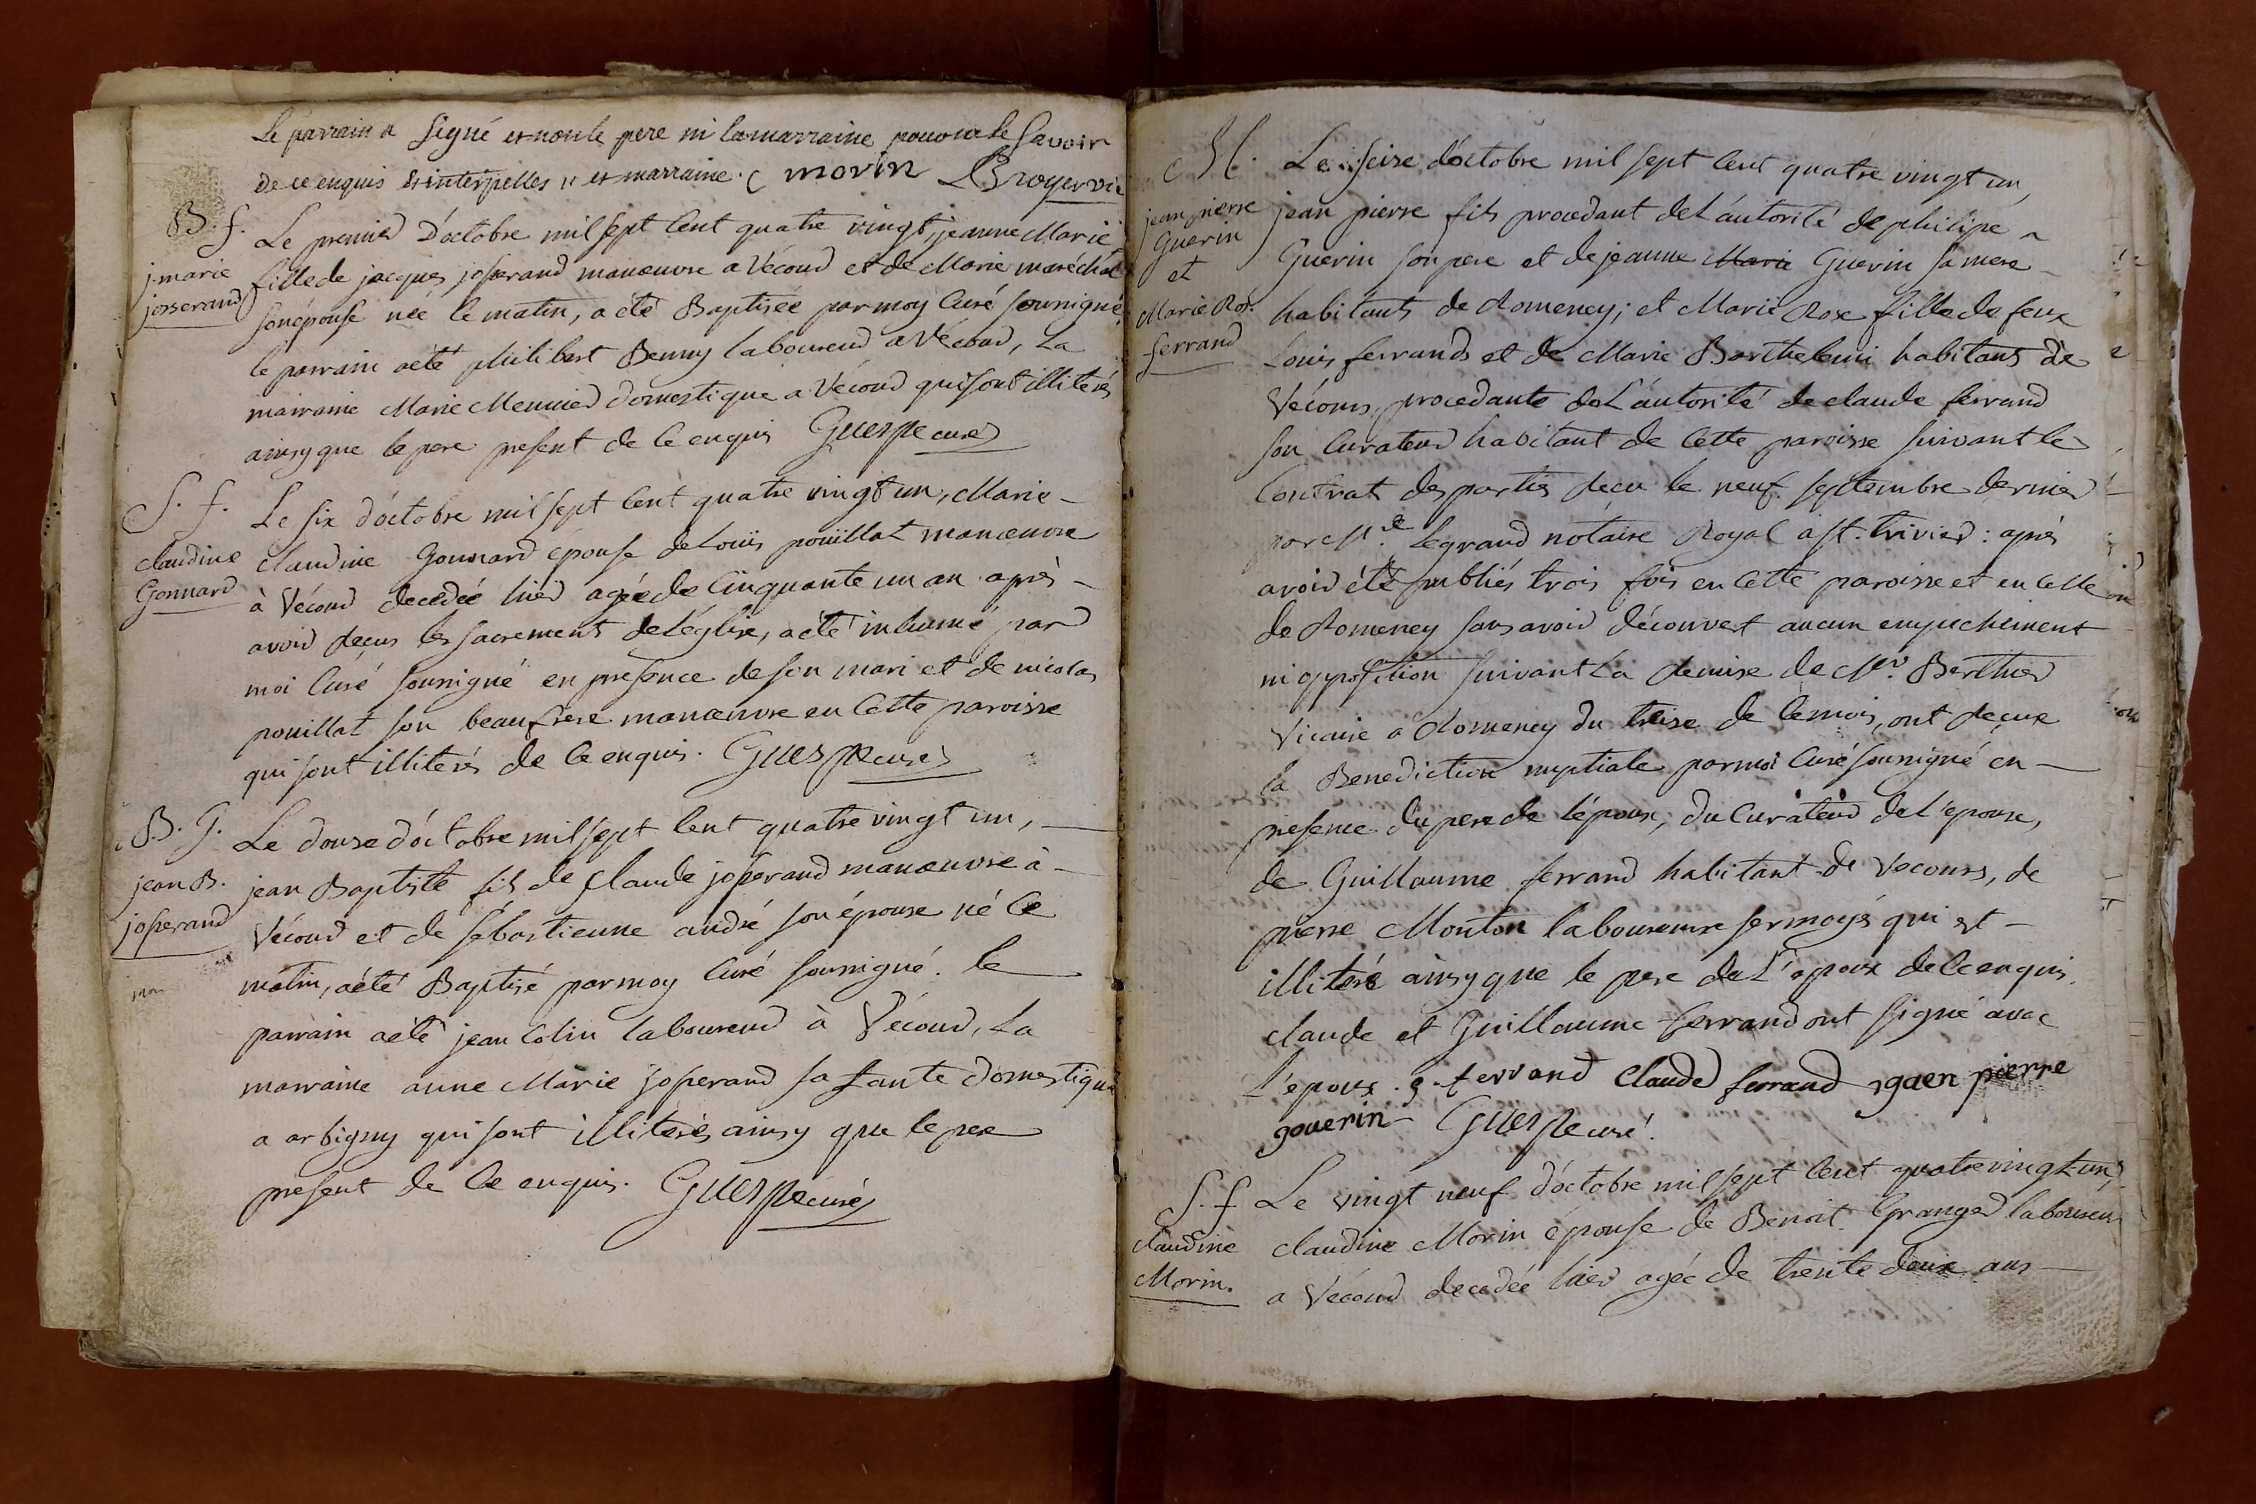 Le parrain a signé et non le pere ni la marraine pour ne le savoir
de ce enquis & interpellés et marraine. C morin Broyer vic
B. f.
j. marie
josserand
Le premier D'octobre mil sept cent quatre vingt, jeanne Marie
fille de jacques josserand manœuvre a Vécour et de Marie maréchal
son épouse née le matin, a été Baptisée par moy Curé soussigné,
le parrain a été philibert Benuy laboureur a Vécour, La
marraine Marie Meunier domestique a Vécour qui sont illiterés
ainsy que le pere present de ce enquis Guerpe curé
S. f.
claudine
Gonnard
Le six d'octobre mil sept cent quatre vingt un, Marie
claudine Gonnard épouse de Louis pouillat manœuvre
à Vécour decedée hier agée de Cinquante un an après
avoir reçus les sacrements de L'église, a été inhumé par
moi Curé soussigné en presence de son mari et de nicolas
pouillat son beaufrere manœuvre en Cette paroisse
qui sont illiterés de ce enquis. Guerpe curé
B. G.
jean B.
josserand
Le douse d'octobre mil sept cent quatre vingt un,
jean Baptiste fils de Claude josserand manœuvre à
Vécour et de sébastienne andré son épouse né le
matin, a été Baptisé par moy Curé soussigné. le
parrain a été jean Colin laboureur à Vécour, La
marraine anne Marie josserand sa tante domestique
a arbigny qui sont illiterés ainsy que le pere
present de ce enquis. Guerpe curé
M.
jean pierre
Guerin
et
Marie Ros.
ferrand
Le seise d'octobre mil sept cent quatre vingt un,
jean pierre fils procedant de L'autorité de philipe
Guerin son pere et de jeanne Marie Guerin sa mere
habitants de Romeney; et Marie Rose fille de feux
Louis ferrand et de Marie Barthelemi habitants de
Vécours, procedante de L'autorité de claude ferrand
son Curateur habitant de Cette paroisse suivant le
Contrat des parties recu le neuf septembre dernier
par Me Legrand notaire Royal a st. trivier: après
avoir été publiés trois fois en Cette paroisse et en Celle
de Romeney sans avoir découvert aucun empechement
ni opposition suivant La remise de Mr. Berthier
Vicaire a Romeney du treise de ce mois, ont reçue
la Benediction nuptiale par moi Curé soussigné en
presence du pere de l'époux, du Curateur de L'epouse,
de Guillaume ferrand habitant de Vecours, de
pierre Mouton laboureur a sermoyé qui est
illiteré ainsy que le pere de L'epoux de ce enquis.
claude et Guillaume ferrand ont signé avec
L'epoux. g. ferrand Claude ferrand jgaen pierre
gouerin Guerpe curé.
S. f
claudine
Morin.
Le vingt neuf d'octobre mil sept cent quatre vingt un,
claudine Morin épouse de Benoit Granger laboureur
a Vécour decedée hier agée de trente deux ans